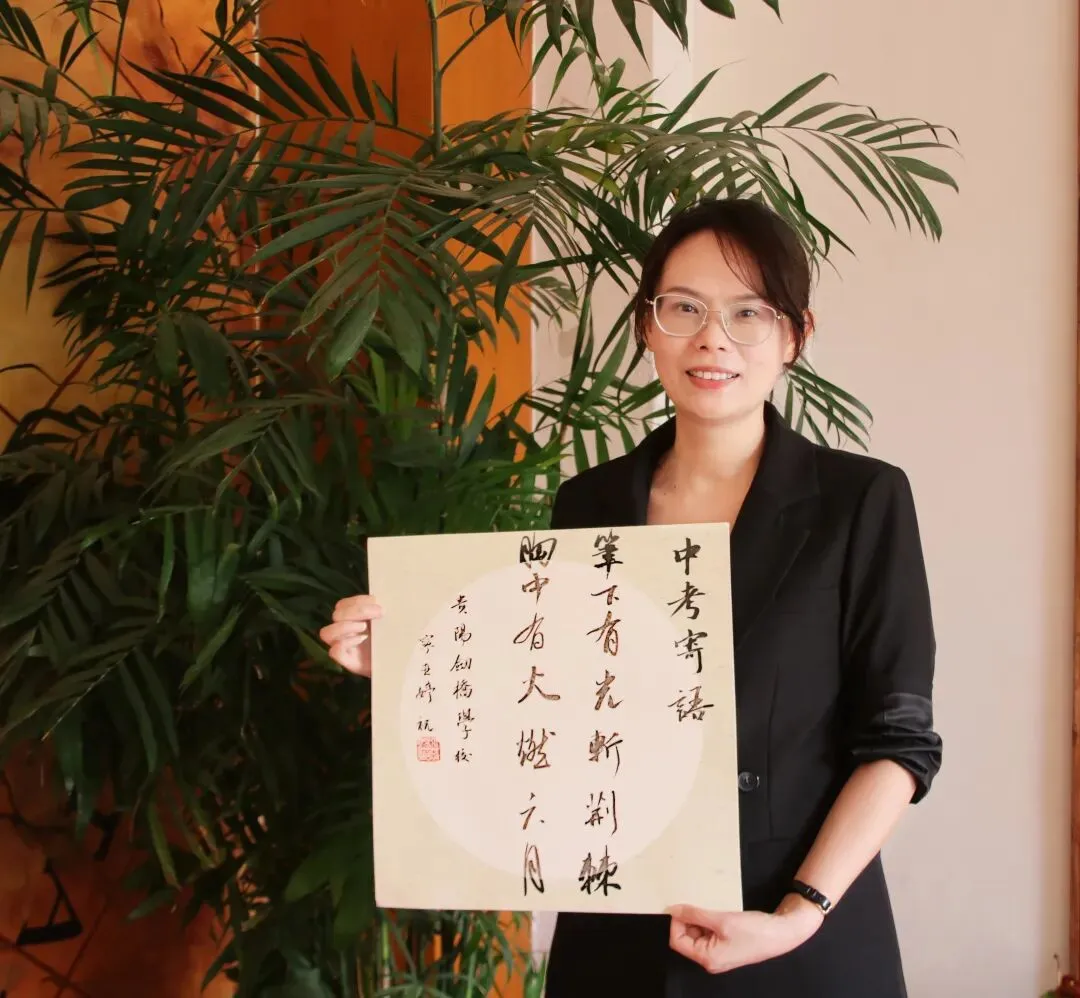 中考寄語
筆下有光斬荆棘
胸中有火燃六月
貴陽劍橋學校
婷 祝